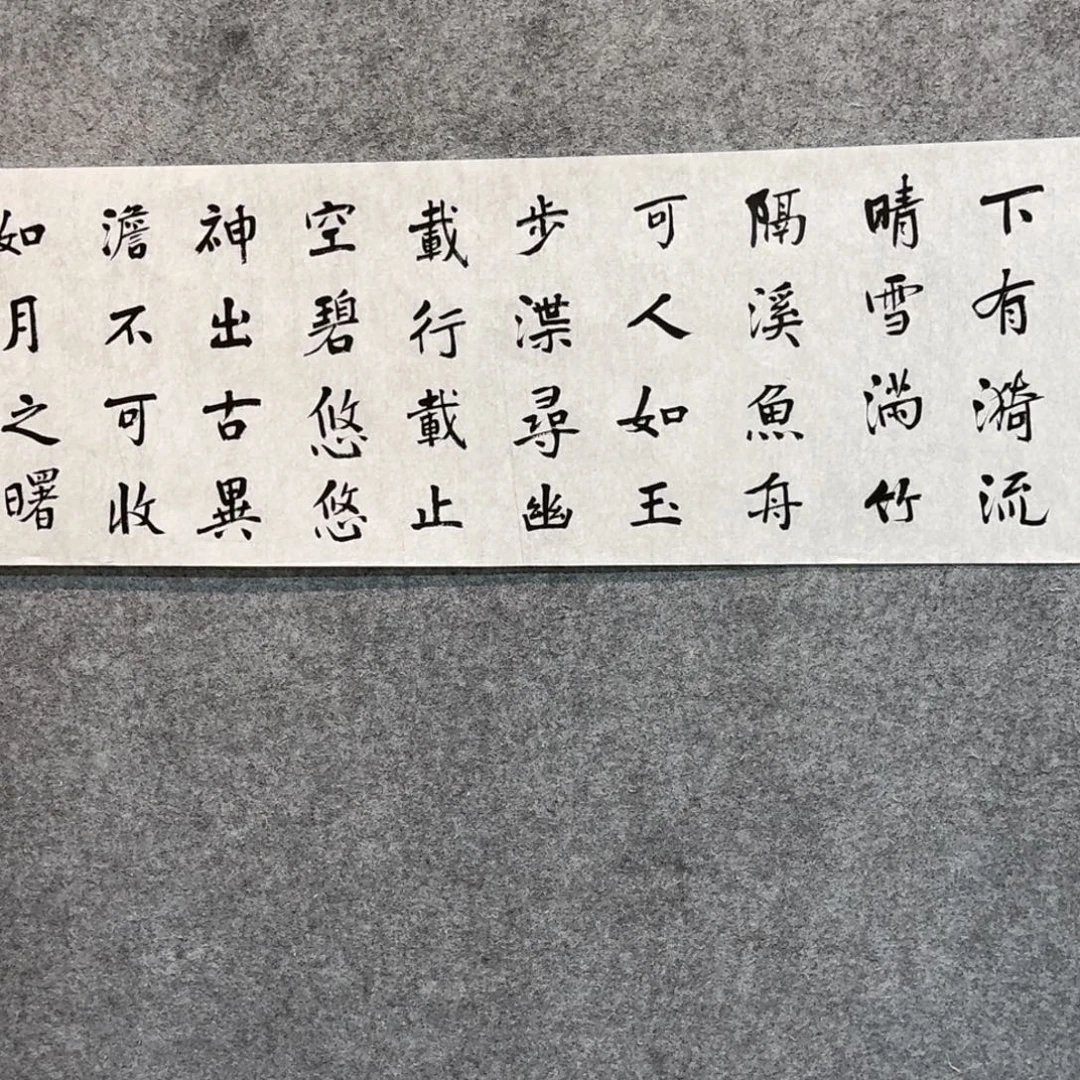 下有漪流
晴雪满竹
隔溪魚舟
可人如玉
步渫尋幽
載行載止
空碧悠悠
神出古異
澹不可收
如月之曙